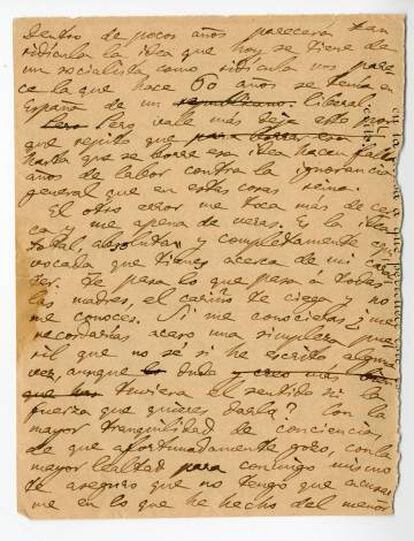 Dentro de pocos años parecerá tan
ridícula la idea que hoy se tiene de
un socialista como ridícula nos pare-
ce la que hace 60 años se tenía en
España de un republicano. liberal.
Pero Pero vale más dejar esto por
que repito que para borrar con
hasta que se borre esa idea hacen falta
años de labor contra la ignorancia
general que en estas cosas reina.
El otro error me toca más de cer
ca y me apena de veras. Es la idea
total, absoluta y completamente equi
vocada que tienes acerca de mi carác
ter. Te pasa lo que pasa á todas
las madres, el cariño te ciega y no
me conoces. Si me conocieras ¿me
recordarías acaso una simpleza pue
ril que no sé si he escrito alguna
vez, aunque lo dudo y creo más bien
que no tuviera el sentido ni la
fuerza que quieres darla? Con la
mayor tranquilidad de conciencia,
de que afortunadamente gozo, con la
mayor lealtad para conmigo mismo
te aseguro que no tengo que acusar
me en lo que he hecho del menor